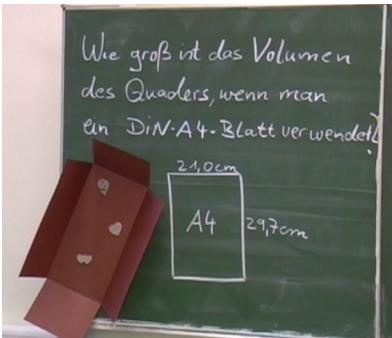 Wie groß ist das Volumen
des Quaders, wenn man
ein DiN-A4-Blatt verwendet?
21,0cm
A4
29,7cm